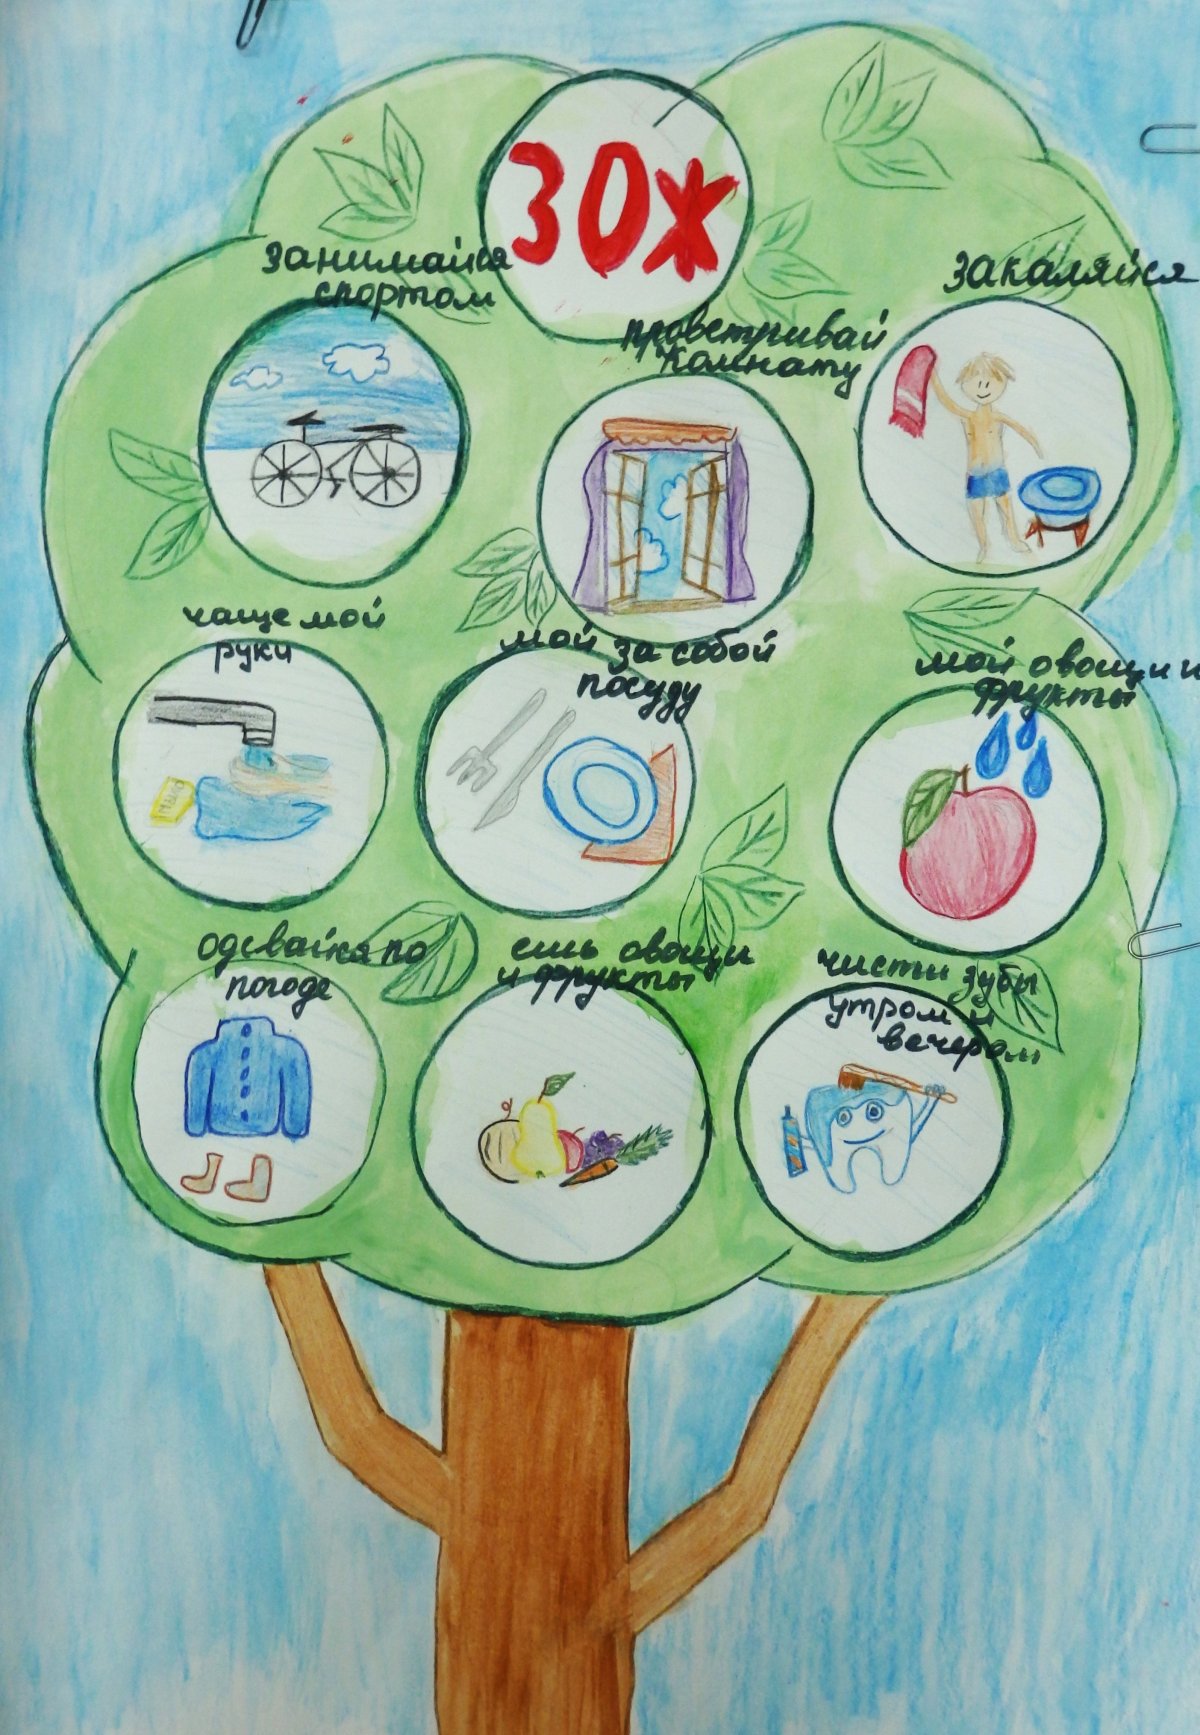 ЗОЖ
занимайся
спортом
проветривай
комнату
закаляйся
чаще мой
руки
мой за собой
посуду
мой овощи и
фрукты
мыло
одевайся по
погоде
ешь овощи
и фрукты
чисти зубы
утром и
вечером